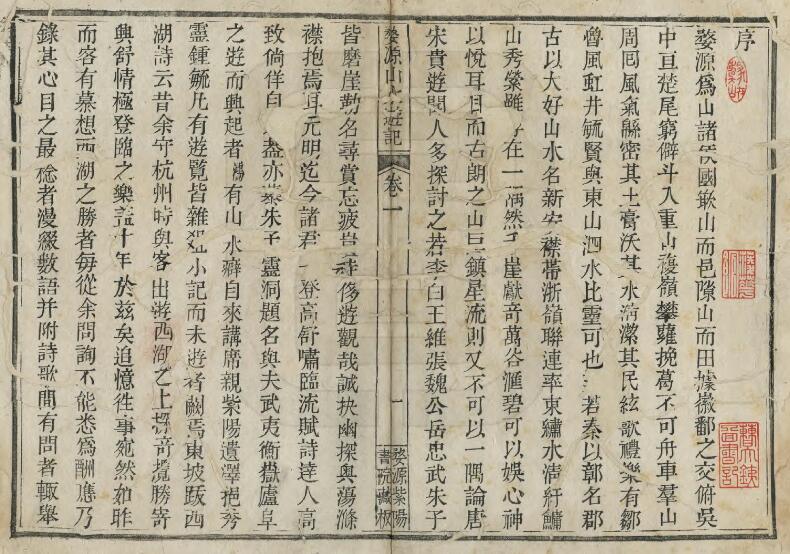 序
婺源爲山諸侯國嵌山而邑隙山而田據徽鄱之交俯吳
中亘楚尾窮僻斗入重山複嶺攀蘿挽葛不可舟車羣山
周回風氣緜密其土膏沃其水淸潔其民絃歌禮樂有鄒
魯風虹井毓賢與東山泗水比靈可也若秦以鄣名郡
古以大好山水名新安襟帶浙嶺聯連率東繡水淸紆鱅
山秀縈雖在一隅然千崖獻奇萬谷滙碧可以娛心神
以悅耳目而古朗之山巨鎭星流則又不可以一隅論唐
宋貴遊聞人多探討之若李白王維張魏公岳忠武朱子
婺源山水遊記
卷一
一
婺源紫陽
書院藏板
皆磨崖勒名尋賞忘疲豈侈遊觀哉誠抉幽探奧蕩滌
襟抱焉耳元明迄今諸君登高舒嘯臨流賦詩達人高
致倘佯自盡亦慕朱子靈洞題名與夫武夷衡嶽廬阜
之遊而興起者鴻有山水癖自來講席親紫陽遺澤挹秀
靈鍾毓凡有遊覽皆雜綴小記而未遊者闕焉東坡跋西
湖詩云昔余守杭州時與客出遊西湖之上探奇攬勝寄
興舒情極登臨之樂蓋十年於茲矣追憶往事宛然如昨
而客有慕想西湖之勝者每從余問詢不能悉爲酬應乃
錄其心目之最稔者漫綴數語并附詩歌間有問者輒舉